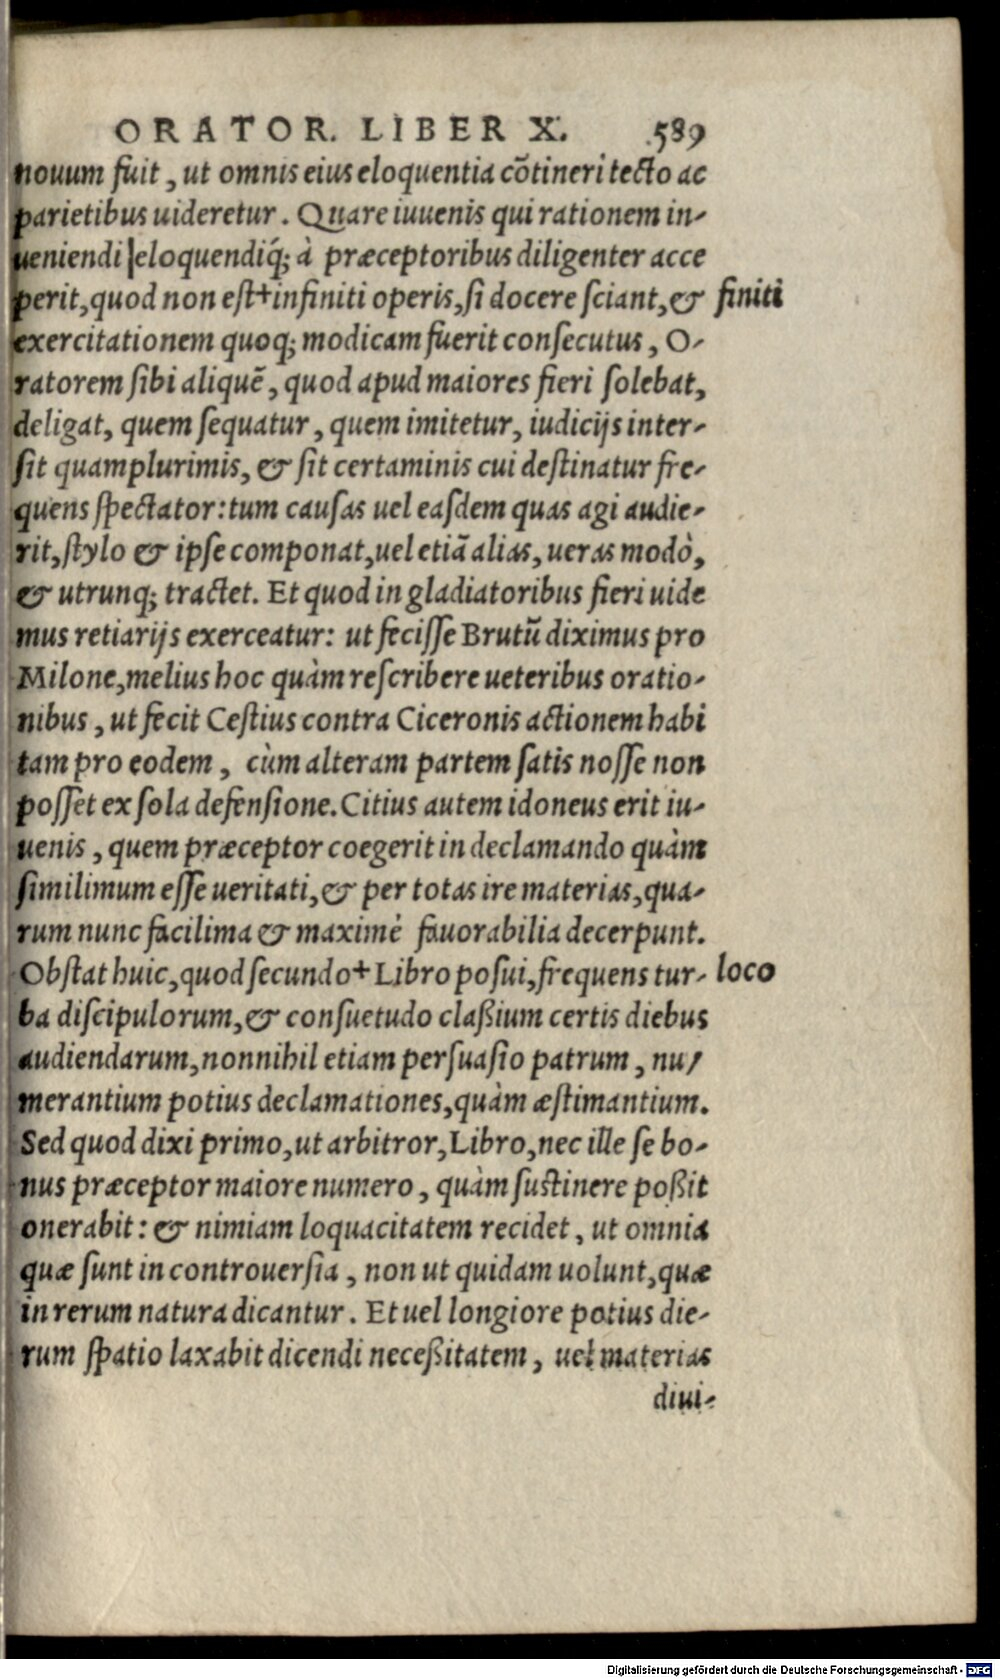 ORATOR. LIBER X. 589
nouum fuit, ut omnis eius eloquentia cõtineri tecto ac
parietibus uideretur. Quare iuuenis qui rationem in-
ueniendi eloquendiq́; à præceptoribus diligenter acce
perit, quod non est+infiniti operis, si docere sciant, & finiti
exercitationem quoq; modicam fuerit consecutus, O-
ratorem sibi aliquẽ, quod apud maiores fieri solebat,
deligat, quem sequatur, quem imitetur, iudicijs inter-
sit quamplurimis, & sit certaminis cui destinatur fre-
quens spectator: tum causas uel easdem quas agi audie-
rit, stylo & ipse componat, uel etiã alias, ueras modò,
& utrunq; tractet. Et quod in gladiatoribus fieri uide
mus retiarijs exerceatur: ut fecisse Brutũ diximus pro
Milone, melius hoc quàm rescribere ueteribus oratio-
nibus, ut fecit Cestius contra Ciceronis actionem habi
tam pro eodem, cùm alteram partem satis nosse non
posset ex sola defensione. Citius autem idoneus erit iu-
uenis, quem præceptor coegerit in declamando quàm
similimum esse ueritati, & per totas ire materias, qua-
rum nunc facilima & maximè fauorabilia decerpunt.
Obstat huic, quod secundo+ Libro posui, frequens tur- loco
ba discipulorum, & consuetudo claßium certis diebus
audiendarum, nonnihil etiam persuasio patrum, nu-
merantium potius declamationes, quàm æstimantium.
Sed quod dixi primo, ut arbitror, Libro, nec ille se bo-
nus præceptor maiore numero, quàm sustinere poßit
onerabit: & nimiam loquacitatem recidet, ut omnia
quæ sunt in controuersia, non ut quidam uolunt, quæ
in rerum natura dicantur. Et uel longiore potius die-
rum spatio laxabit dicendi neceßitatem, uel materias
diui-
Digitalisierung gefördert durch die Deutsche Forschungsgemeinschaft - DFG